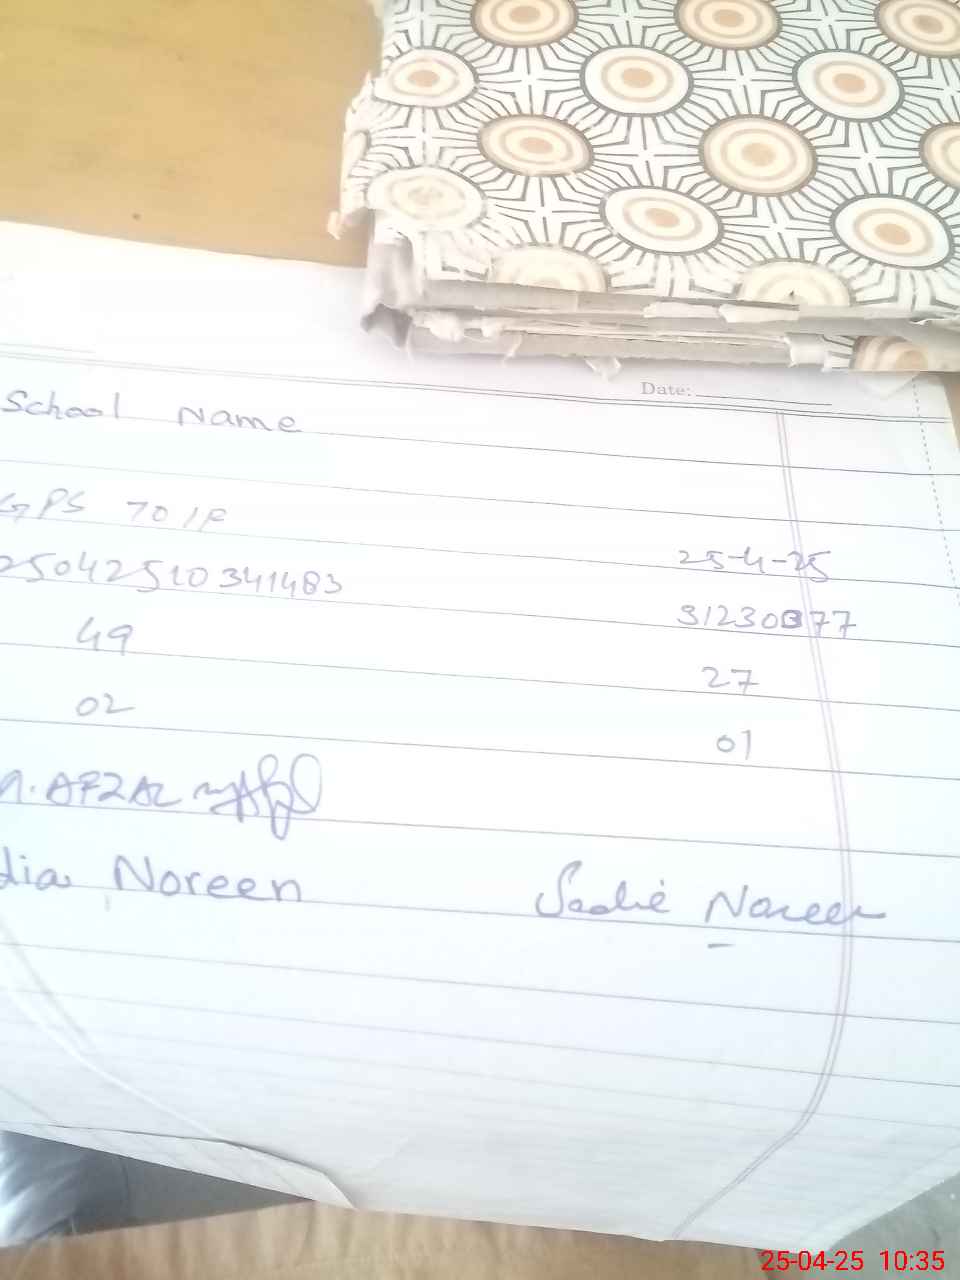 Date:
School Name
GPS 70 1F
25-4-25
25042510341483
31230377
49
27
02
01
AFZAL
dia Noreen
Sadie Noreen
25-04-25 10:35